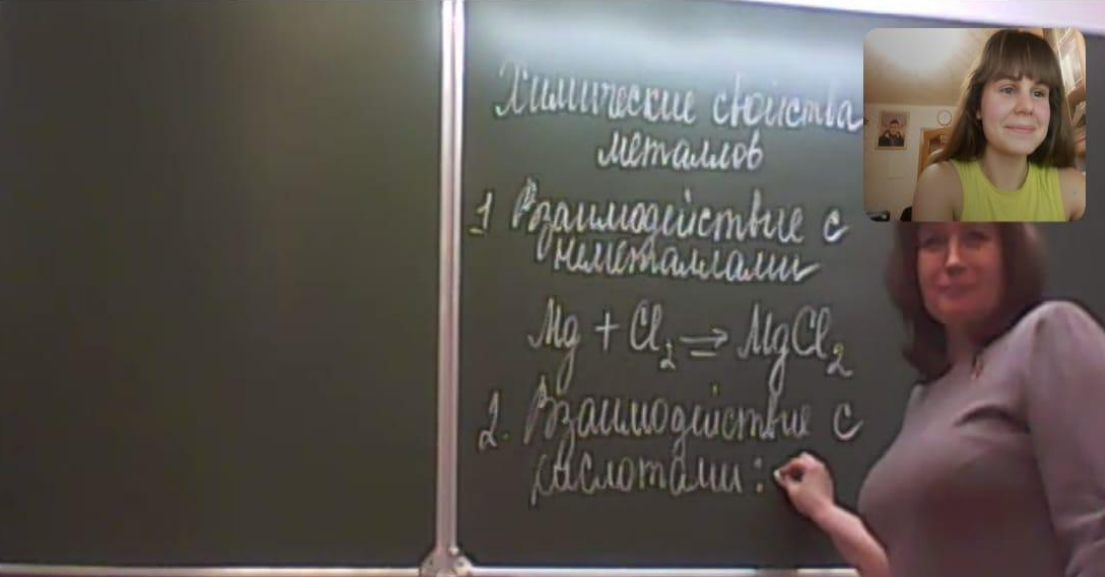 Химические свойства
металлов
1 Взаимодействие с
неметаллами
Mg + Cl₂ → MgCl₂
2. Взаимодействие с
кислотами: